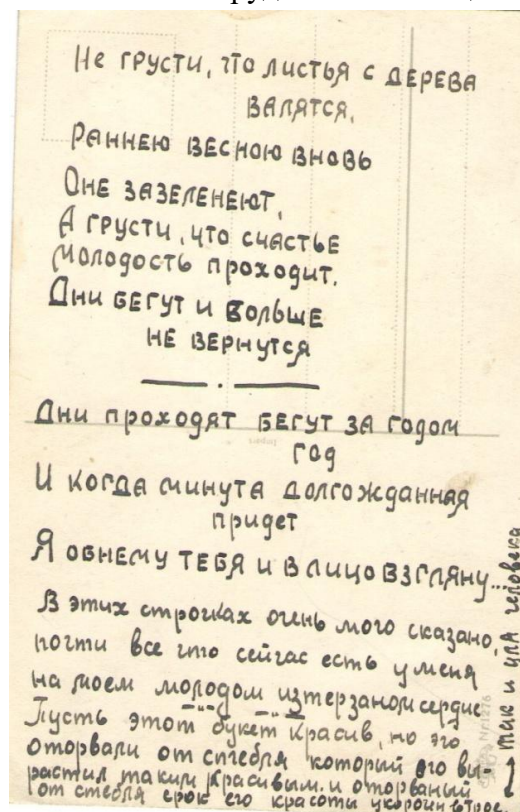 Не грусти, что листья с дерева
валятся,
Раннею весною вновь
Оне зазеленеют,
А грусти, что счастье
молодость проходит,
Дни бегут и больше
не вернутся
Дни проходят бегут за годом
год
И когда минута долгожданная
придет
Я обниму тебя и в лицо взгляну...
В этих строчках очень мого сказано,
почти все что сейчас есть у меня
на моем молодом изтерзаном сердце
Пусть этот букет красив, но его
оторвали от стебля который его вы-
растил таким красивым. и оторваный
от стебля срок его красоты укорочен
так и для человека